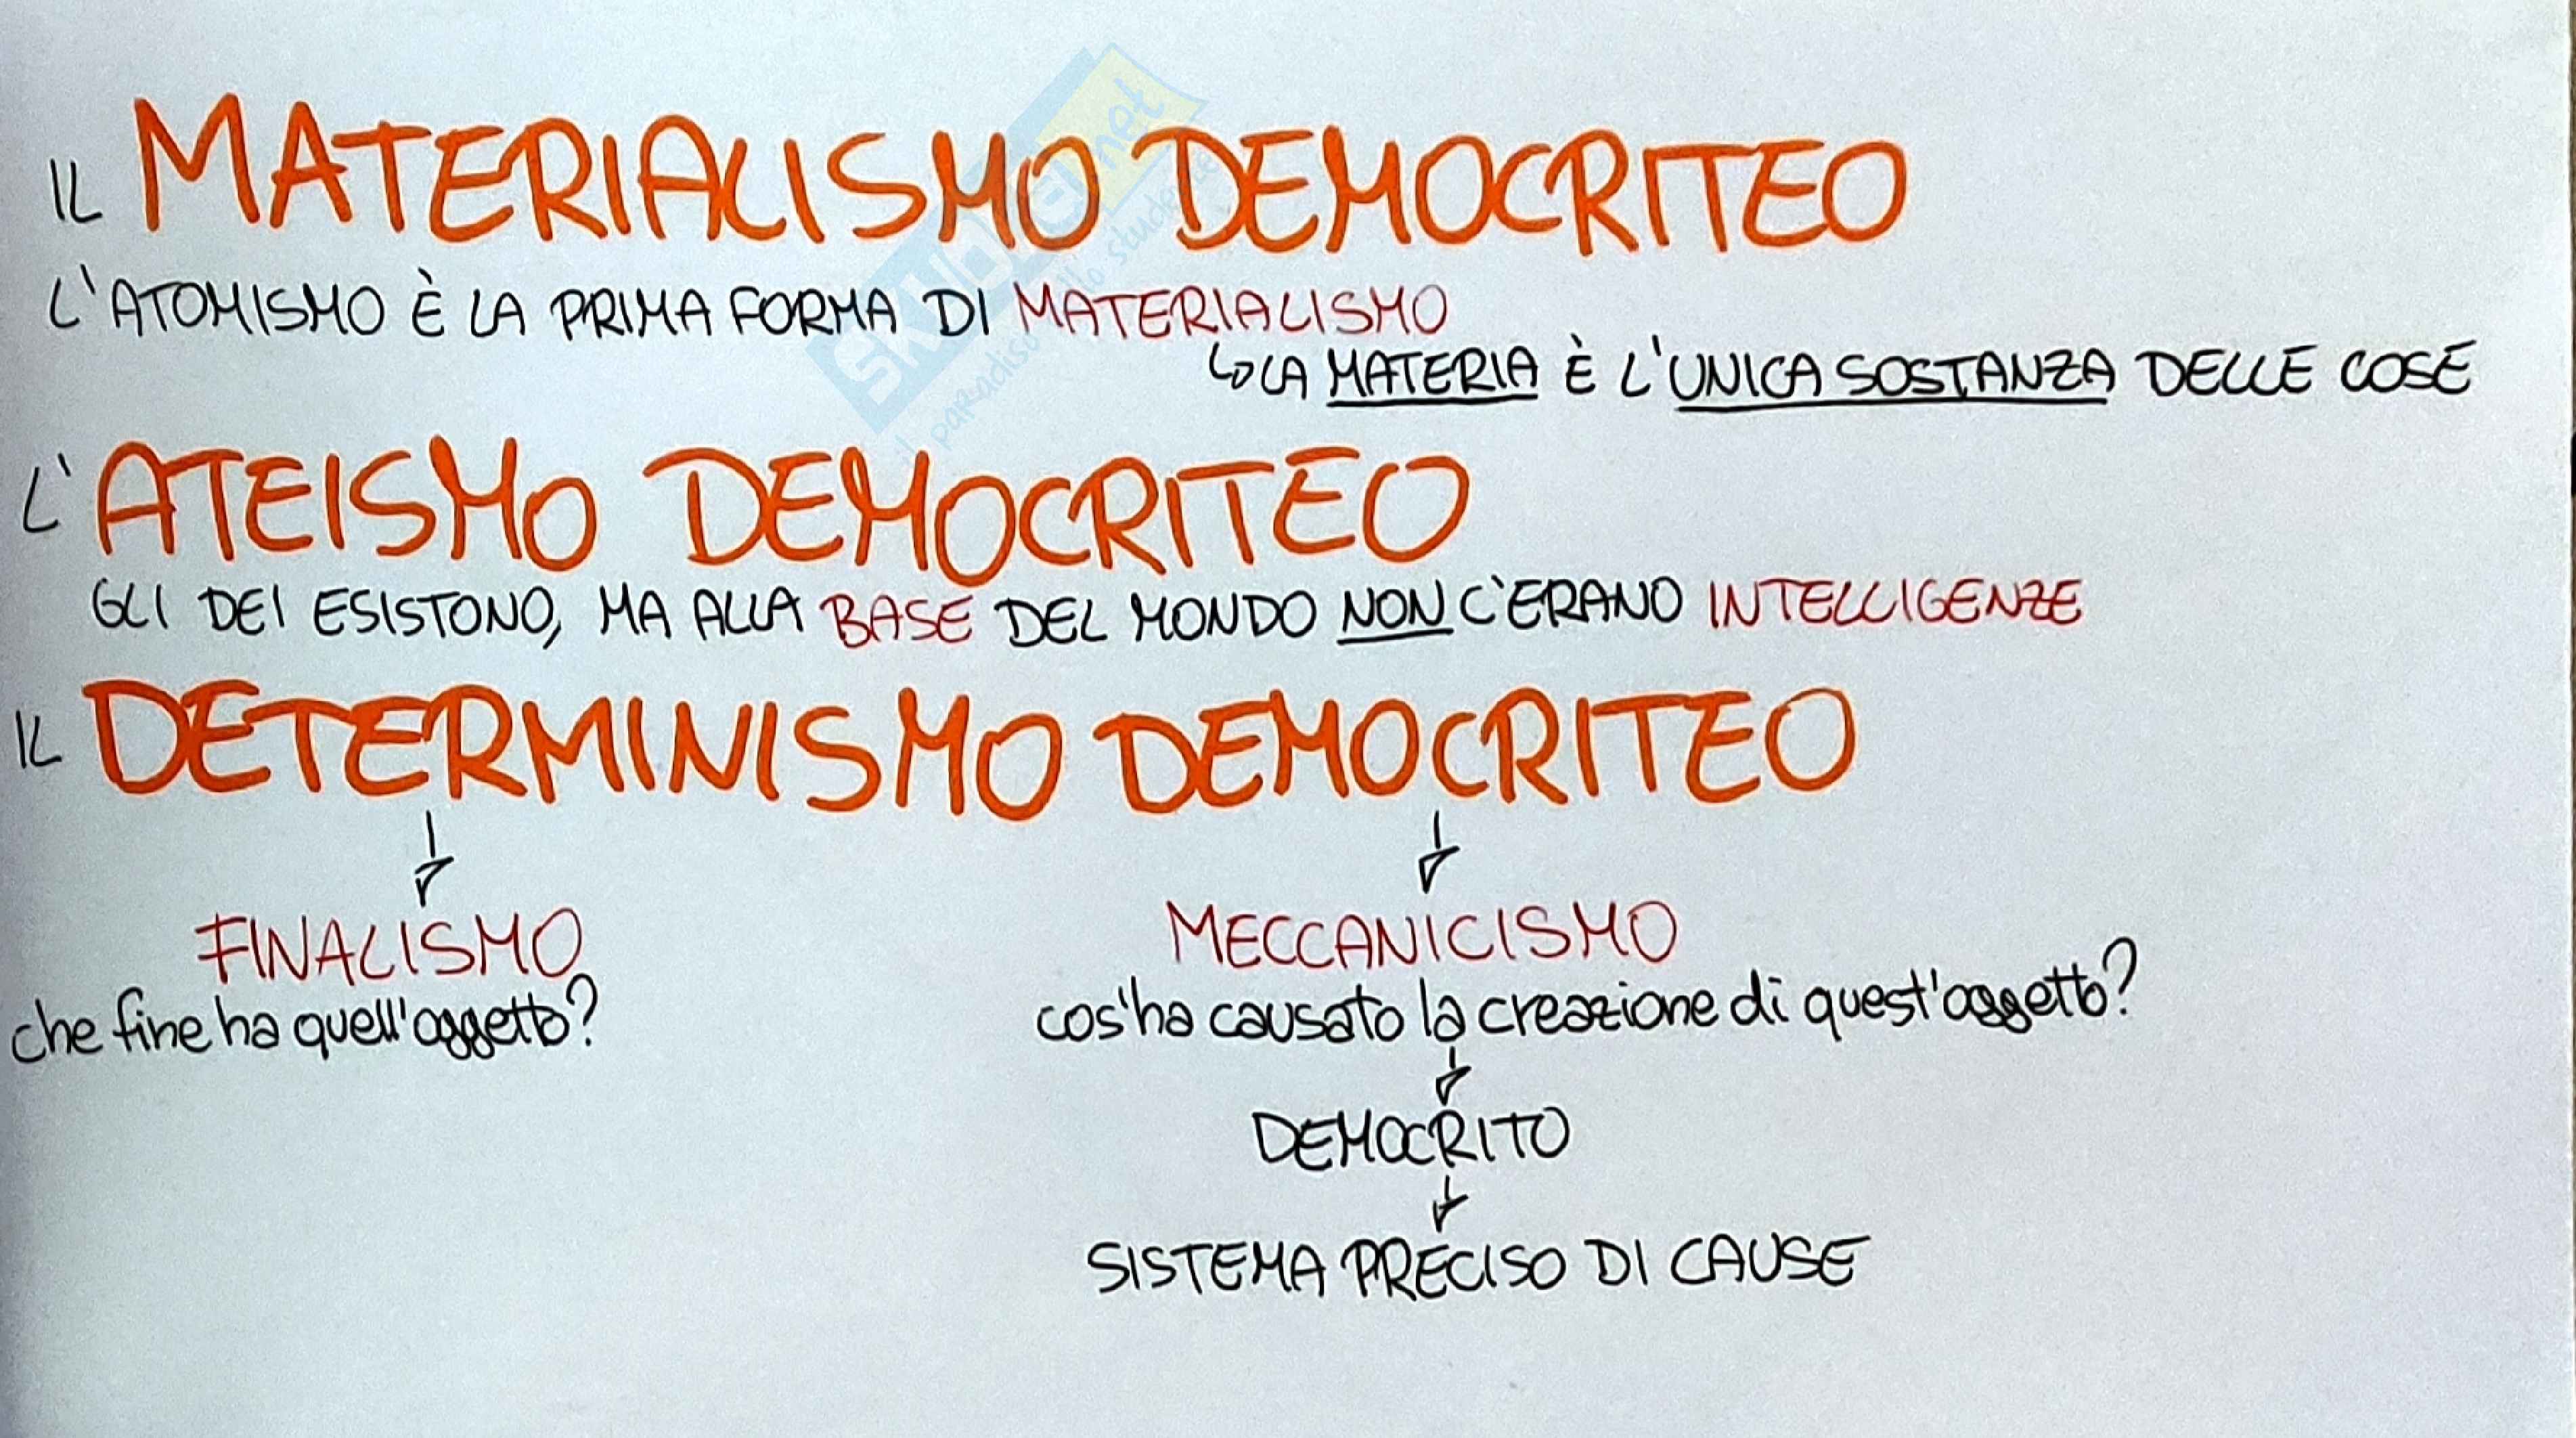 IL MATERIALISMO DEMOCRITEO
L'ATOMISMO È LA PRIMA FORMA DI MATERIALISMO
↳ LA MATERIA È L'UNICA SOSTANZA DELLE COSE
L'ATEISMO DEMOCRITEO
GLI DEI ESISTONO, MA ALLA BASE DEL MONDO NON C'ERANO INTELLIGENZE
IL DETERMINISMO DEMOCRITEO
FINALISMO MECCANICISMO
che fine ha quell'oggetto? cos'ha causato la creazione di quest'oggetto?
DEMOCRITO
SISTEMA PRECISO DI CAUSE
skuola.net
il paradiso dello studente